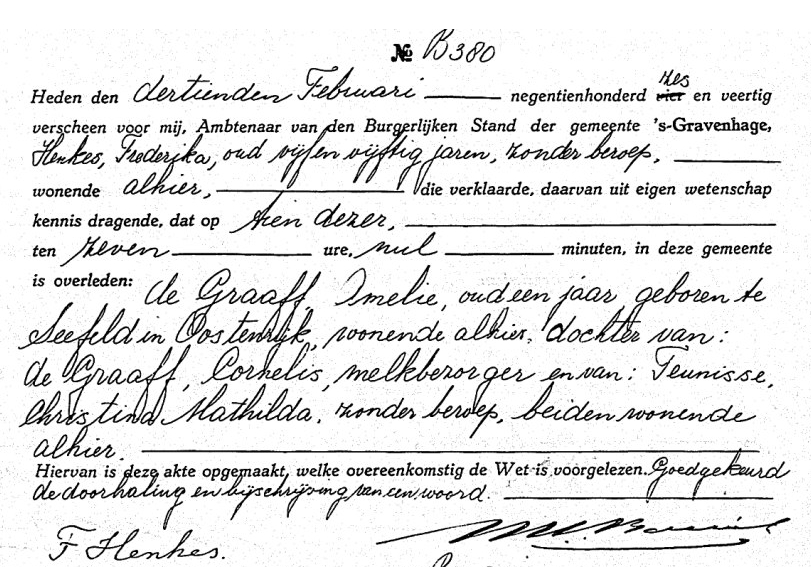 № B380
Heden den dertienden Februari negentienhonderd zes vier en veertig
verscheen voor mij, Ambtenaar van den Burgerlijken Stand der gemeente 's-Gravenhage,
Henkes, Frederika, oud vijf en vijftig jaren, zonder beroep,
wonende alhier, die verklaarde, daarvan uit eigen wetenschap
kennis dragende, dat op tien dezer,
ten zeven ure, nul minuten, in deze gemeente
is overleden: de Graaff, Imelie, oud een jaar, geboren te
Seefeld in Oostenrijk, wonende alhier, dochter van:
de Graaff, Cornelis, melkbezorger en van: Teunisse,
Christina Mathilda, zonder beroep, beiden wonende
alhier.
Hiervan is deze akte opgemaakt, welke overeenkomstig de Wet is voorgelezen. Goedgekeurd
de doorhaling en bijschrijving van een woord.
F Henkes.